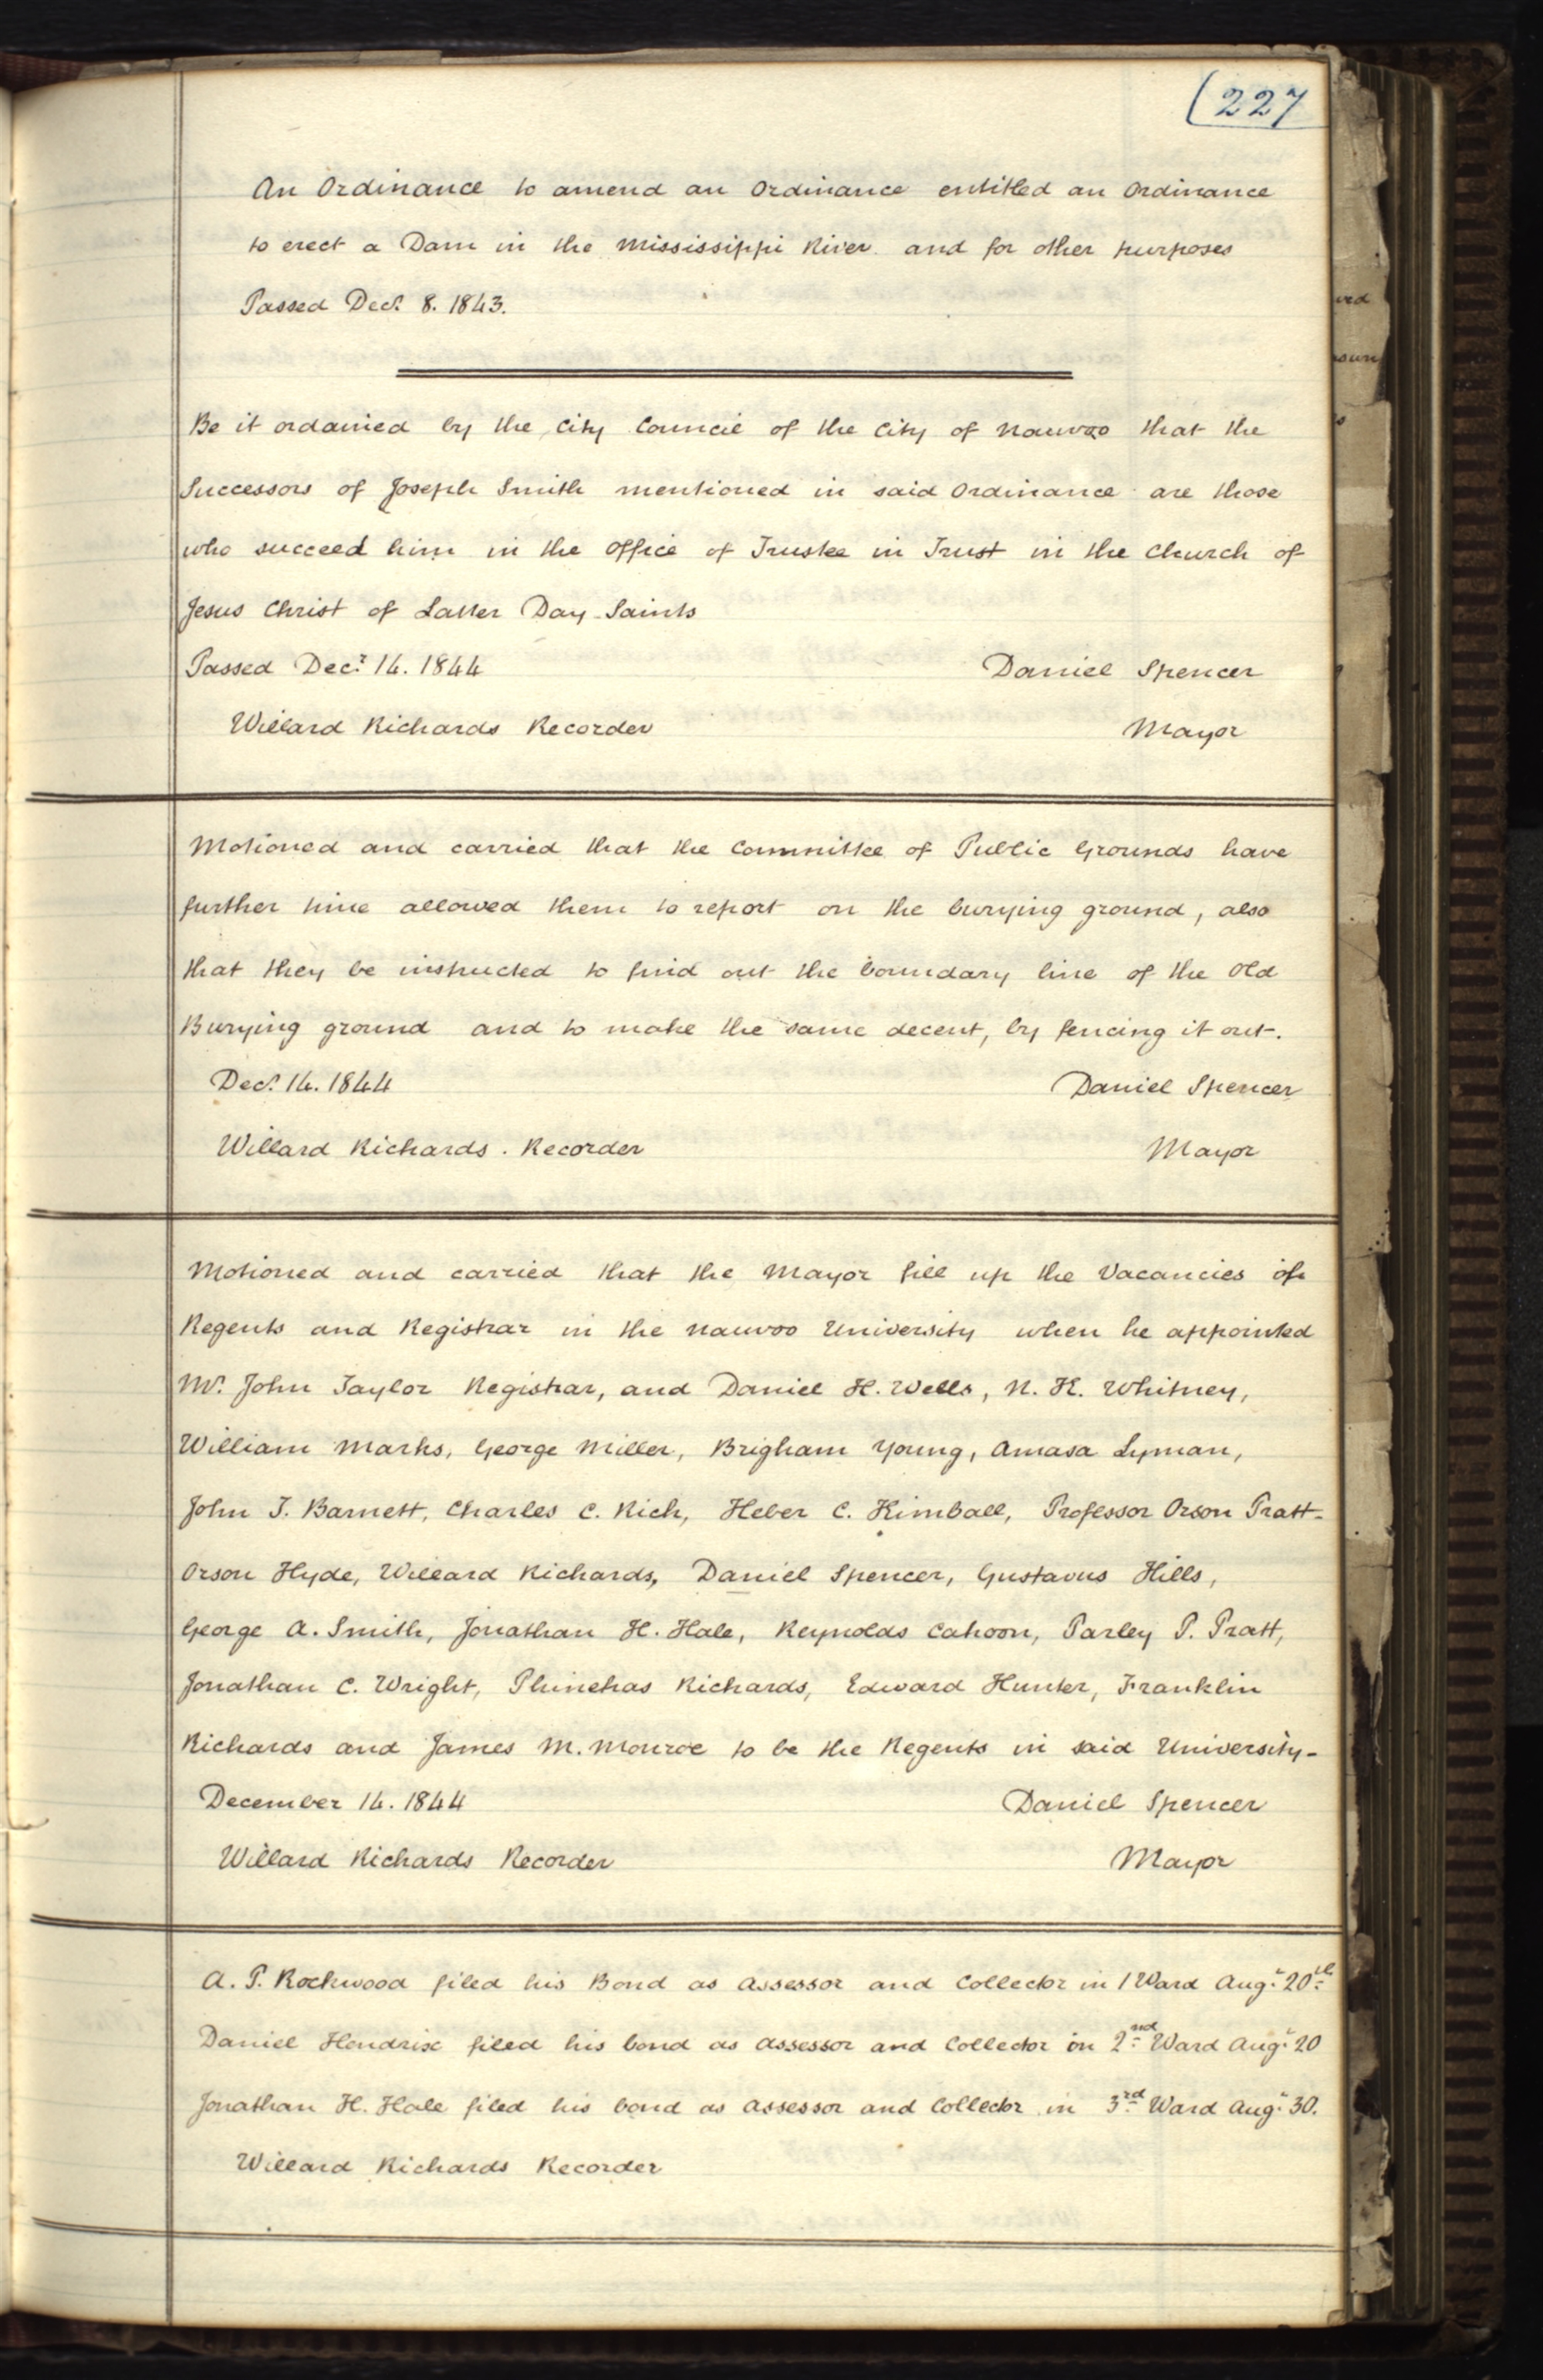 (227
An Ordinance to amend an Ordinance entitled an Ordinance
to erect a Dam in the Mississippi River and for other purposes
Passed Decr. 8. 1843.
Be it ordained by the City Council of the City of Nauvoo that the
Successors of Joseph Smith mentioned in said Ordinance are those
who succeed him in the Office of Trustee in Trust in the Church of
Jesus Christ of Latter Day Saints
Passed Decr. 14. 1844 Daniel Spencer
Willard Richards Recorder Mayor
Motioned and carried that the Committee of Public Grounds have
further time allowed them to report on the burying ground, also
that they be instructed to find out the boundary line of the Old
Burying ground and to make the same decent, by fencing it out.
Decr. 14. 1844 Daniel Spencer
Willard Richards. Recorder Mayor
Motioned and carried that the Mayor fill up the Vacancies of
Regents and Registrar in the Nauvoo University when he appointed
Mr. John Taylor Registrar, and Daniel H. Wells, N. K. Whitney,
William Marks, George Miller, Brigham Young, Amasa Lyman,
John T. Barnett, Charles C. Rich, Heber C. Kimball, Professor Orson Pratt-
Orson Hyde, Willard Richards, Daniel Spencer, Gustavus Hills,
George A. Smith, Jonathan H. Hale, Reynolds Cahoon, Parley P. Pratt,
Jonathan C. Wright, Phinehas Richards, Edward Hunter, Franklin
Richards and James M. Monroe to be the Regents in said University-
December 14. 1844 Daniel Spencer
Willard Richards Recorder Mayor
A. P. Rockwood filed his Bond as Assessor and Collector in 1 Ward Augt. 20th
Daniel Hendrix filed his bond as Assessor and Collector in 2nd Ward Augt. 20
Jonathan H. Hale filed his bond as Assessor and Collector in 3rd Ward Augt. 30.
Willard Richards Recorder